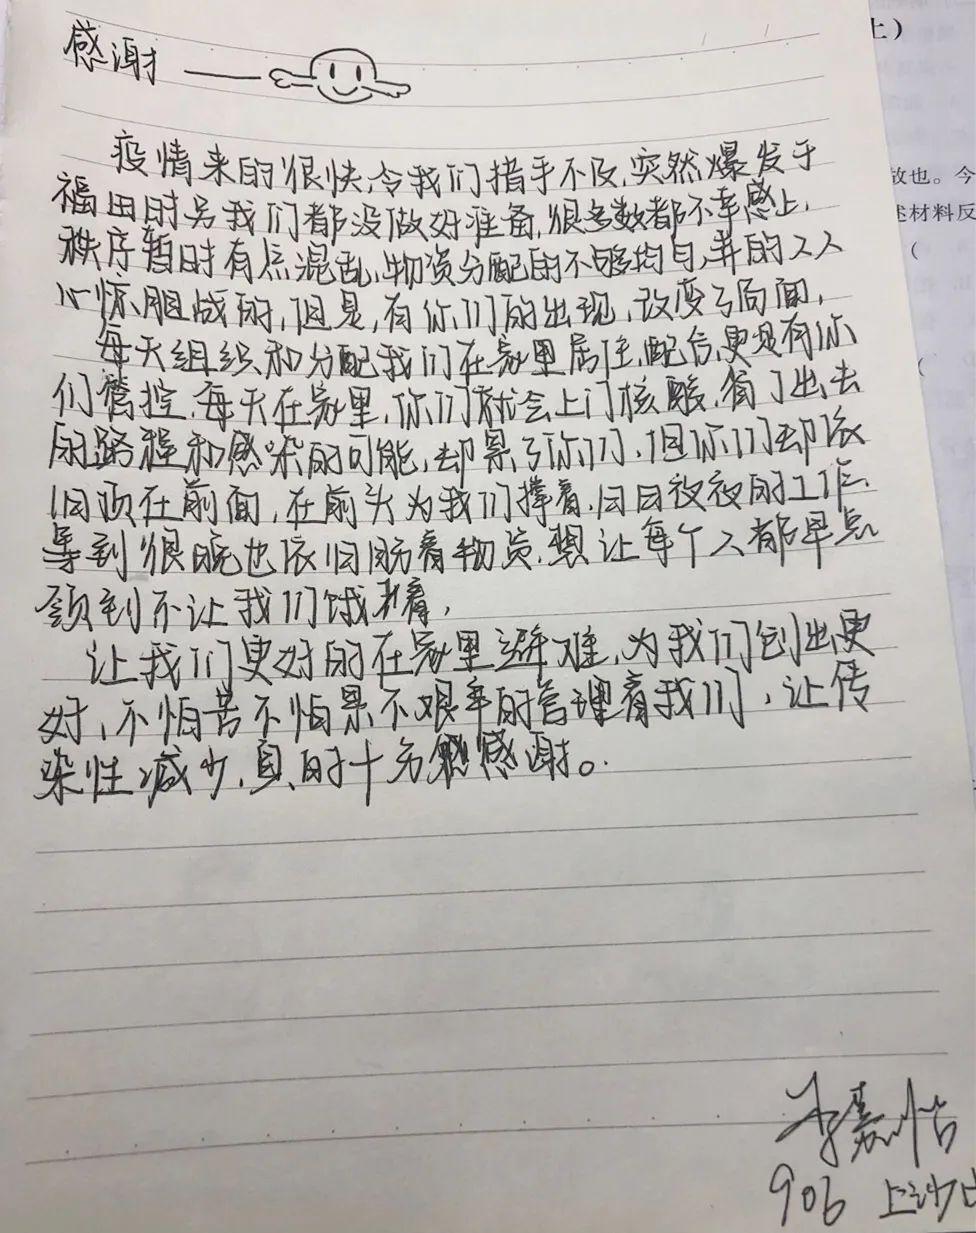 感谢
上）
疫情来的很快,令我们措手不及,突然爆发于
放也。今
福田时另我们都没做好准备,很多数都不幸感上,
述材料反
秩序暂时有点混乱,物资分配的不够均匀,弄的人人
（
心惊胆战的,但是,有你们的出现,改变了局面,
每天组织和分配我们在家里居住,配合,更是有你
们管控,每天在家里,你们就会上门核酸,省了出去
（
的路程和感染的可能,却累了你们,但你们却依
旧顶在前面,在前头为我们撑着,日日夜夜的工作,
等到很晚也依旧肠着物资,想让每个人都早点
领到不让我们饿着,
让我们更好的在家里避难,为我们创出更
好,不怕苦不怕累不艰辛的管理着我们,让传
染性减少,真的十分感谢。
906 上沙